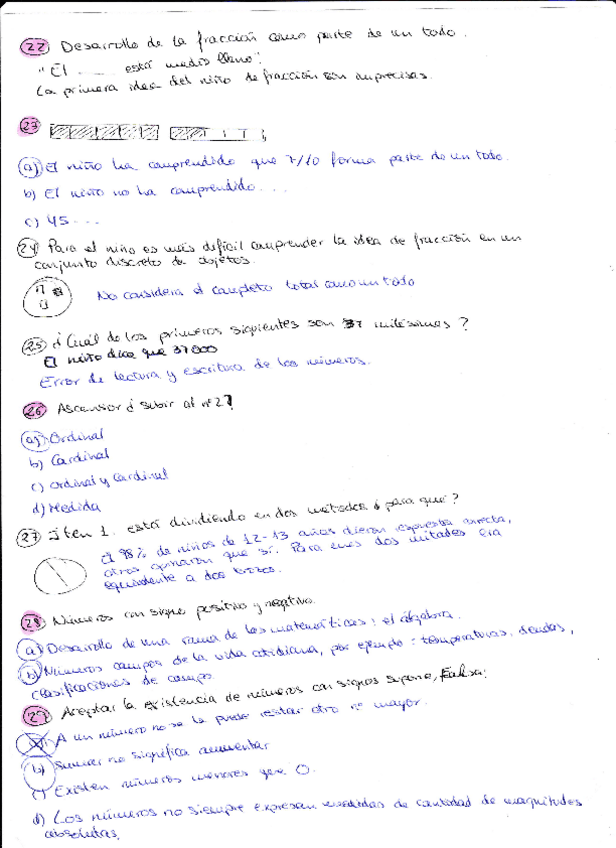 22 Desarrollo de la fracción como parte de un todo.
"El ...... está medio lleno".
La primera idea del niño de fracción son imprecisas.
23
a) El niño ha comprendido que 7/10 forma parte de un todo.
b) El niño no ha comprendido ...
c) 45 ...
24 Para el niño es más difícil comprender la idea de fracción en un
conjunto discreto de objetos.
No considera el completo total como un todo
25 ¿Cuál de los primeros siguientes son 37 milésimas?
El niño dice que 37000
Error de lectura y escritura de los números.
26 Ascensor ¿subir al nº 2?
a) Ordinal
b) Cardinal
c) ordinal y cardinal
d) Medida
27 Item 1. está dividiendo en dos mitades ¿para qué?
El 98% de niños de 12-13 años dieron respuesta correcta,
otros opinaron que sí. Para dos mitades era
equivalente a dos trozos.
28 Números con signo positivo y negativo.
a) Desarrollo de una rama de las matemáticas: el álgebra.
b) Números campos de la vida cotidiana, por ejemplo: temperaturas, deudas,
clasificaciones de campo.
29 Aceptar la existencia de números con signos supone, Falsa:
a) A un número no se le puede restar otro nº mayor.
b) Sumar no significa aumentar
c) Existen números menores que 0.
d) Los números no siempre expresan medidas de cantidad de magnitudes
absolutas.